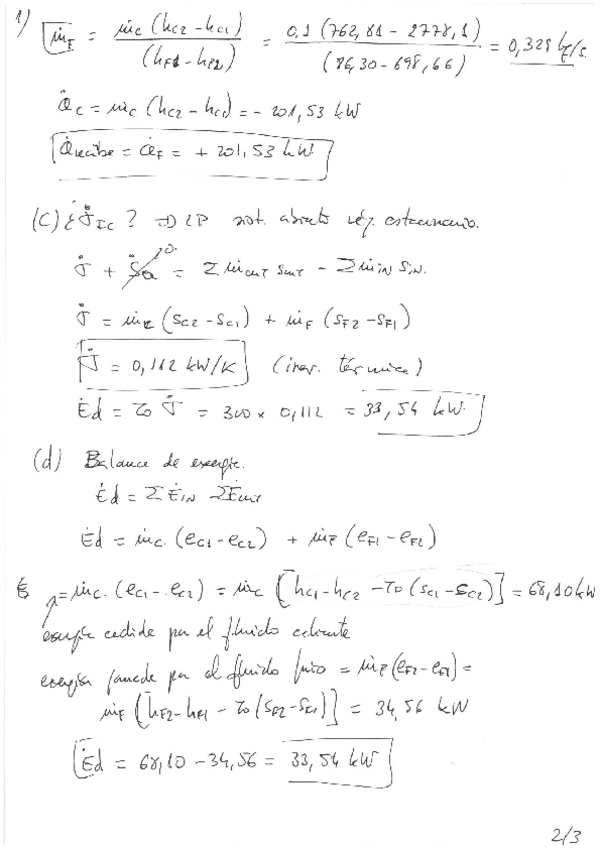 1) ṁF = ṁc (hc2 - hc1) / (hF1 - hF2) = 0,1 (762,81 - 2778,1) / (86,30 - 698,66) = 0,329 kg/s.
Q̇c = ṁc (hc2 - hc1) = - 201,53 kW
Q̇recibe = Q̇F = + 201,53 kW
(C) ¿σ̇IC? ⇒ 2P sist. abierto rég. estacionario.
σ̇ + ṠQ = Σ ṁout sout - Σ ṁIN sIN. 0.
σ̇ = ṁc (sc2 - sc1) + ṁF (sF2 - sF1)
σ̇ = 0,112 kW/K (irrev. térmica)
Ėd = To σ̇ = 300 x 0,112 = 33,54 kW
(d) Balance de exergía.
Ėd = Σ ĖIN - Σ Ėout
Ėd = ṁc. (ec1 - ec2) + ṁF (eF1 - eF2)
Ė = ṁc. (ec1 - ec2) = ṁc [hc1 - hc2 - To (sc1 - sc2)] = 68,10 kW
exergía cedida por el fluido caliente
exergía ganada por el fluido frío = ṁF (eF2 - eF1) =
ṁF [hF2 - hF1 - To (sF2 - sF1)] = 34,56 kW
Ėd = 68,10 - 34,56 = 33,54 kW
2/3